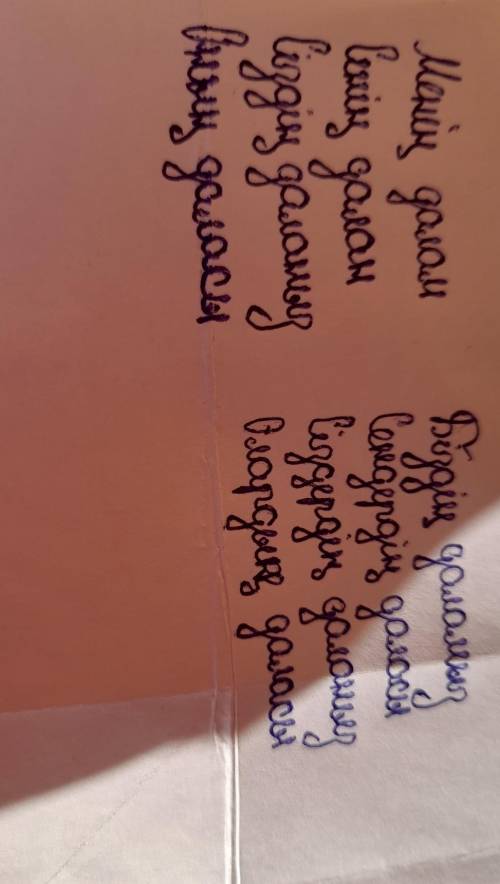 Менің далам
Сенің далаң
Сіздің далаңыз
Оның даласы
Біздің даламыз
Сендердің даласы
Сіздердің далаңыз
Олардың даласы